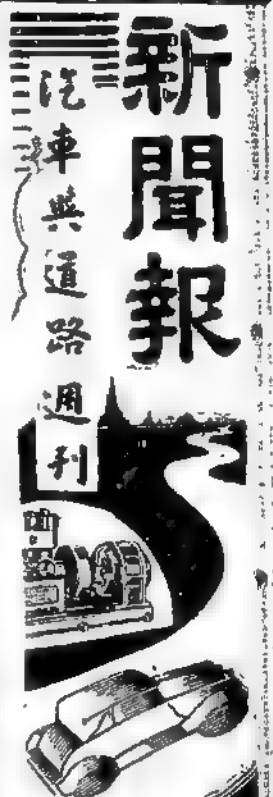 新聞報
汽車與道路週刊